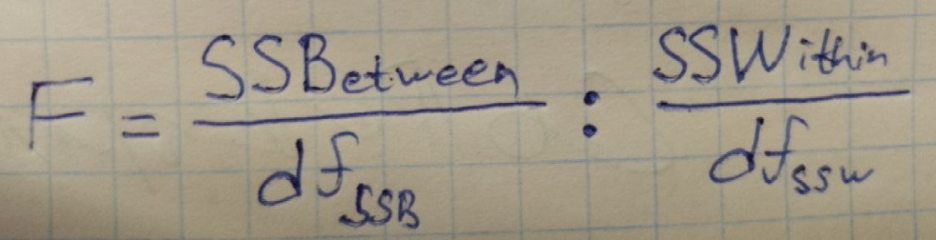 F = SSBetween / df_SSB : SSWithin / df_SSW